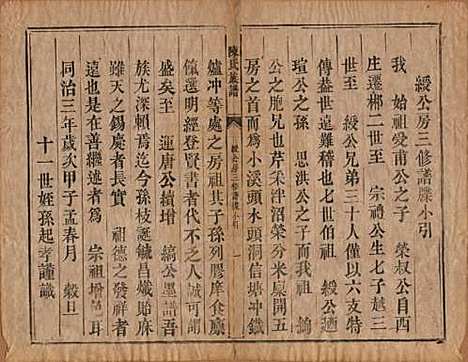 綬公房三修譜牒小引
我 始祖受甫公之子 榮叔公自西
庄遷郴二世 宗禮公生七子越三
世至 綬公兄弟三十人僅以六支特
傳益世遠難稽也七世伯祖 綬公廼
瑄公之孫 思洪公之子而我祖 錦
公之胞兄也芹采泮沼榮 開五
房之首而爲小溪頭水頭洞信塘冲鐵
爐冲等處之房祖其子孫列膠庠食廩
餼選明經登賢書者代不乏人誠可謂
盛矣至 運唐公續 縞公墨譜吾
族尤深賴焉迄今孫枝誕毓昌熾
雖天之錫處者長實 祖德之發祥者
遠也是善繼述者爲 宗祖增 耳
同治三年歲次甲子孟春月 穀旦
十一世姪孫起孝謹識
陳氏族譜
綬公房三修譜牒小引